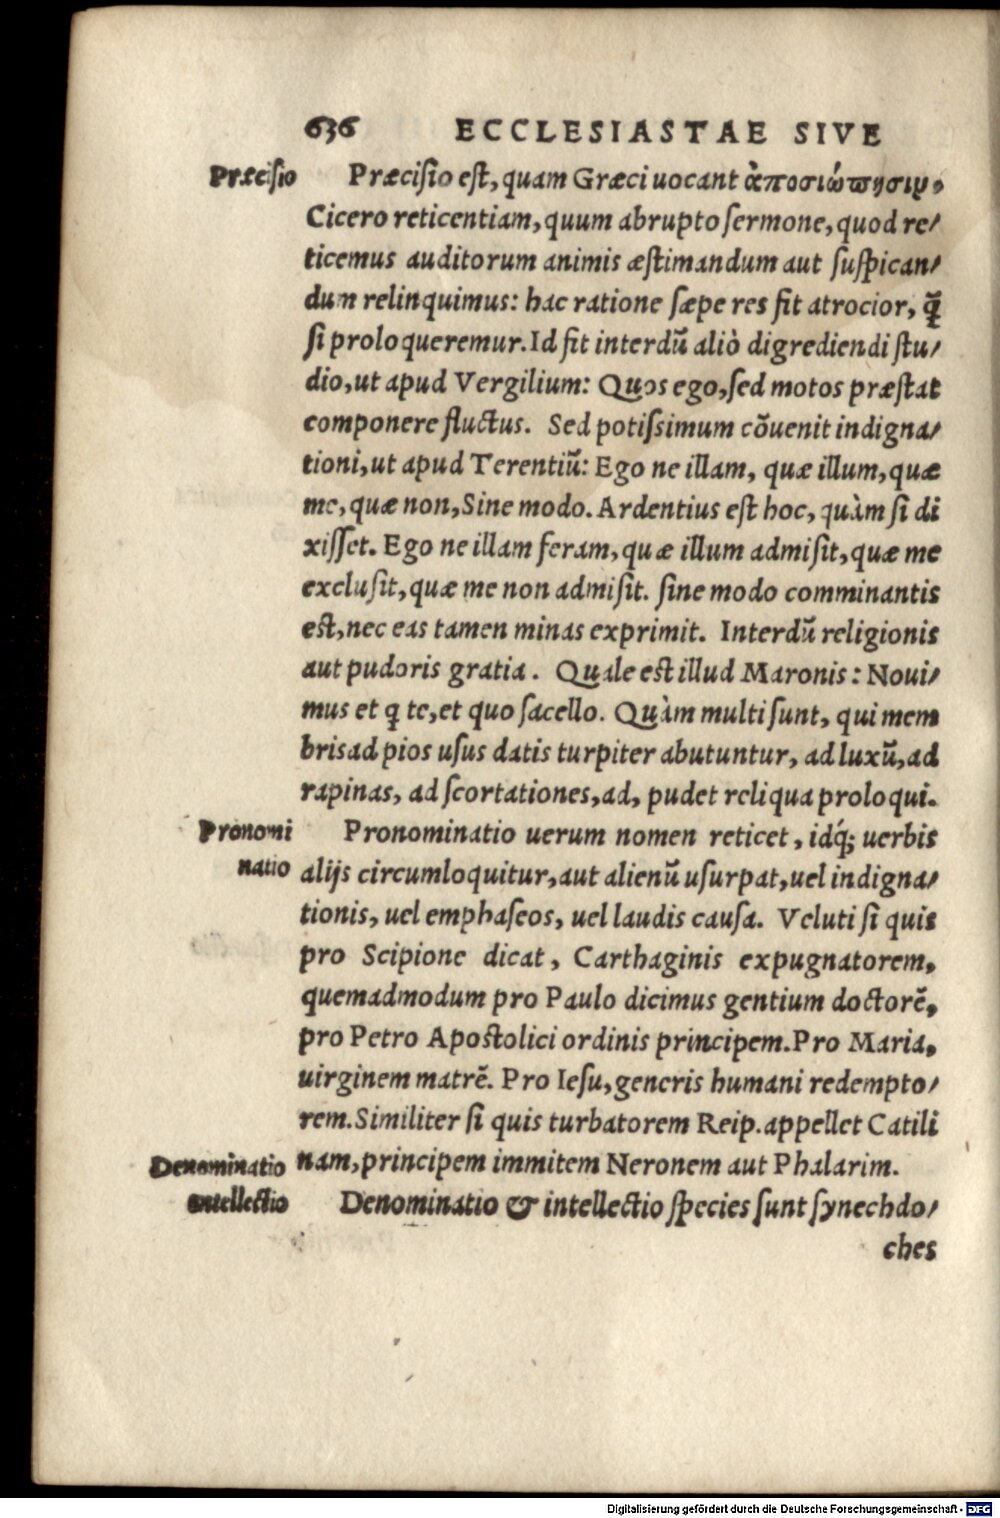 636 ECCLESIASTAE SIVE
Præcisio
Præcisio est, quam Græci uocant ἀποσιώπησιν,
Cicero reticentiam, quum abrupto sermone, quod re/
ticemus auditorum animis æstimandum aut suspican/
dum relinquimus: hac ratione sæpe res fit atrocior, q̃
si proloqueremur. Id fit interdũ aliò digrediendi stu/
dio, ut apud Vergilium: Quos ego, sed motos præstat
componere fluctus. Sed potissimum cõuenit indigna/
tioni, ut apud Terentiũ: Ego ne illam, quæ illum, quæ
me, quæ non, Sine modo. Ardentius est hoc, quàm si di
xisset. Ego ne illam feram, quæ illum admisit, quæ me
exclusit, quæ me non admisit. sine modo comminantis
est, nec eas tamen minas exprimit. Interdũ religionis
aut pudoris gratia. Quale est illud Maronis: Noui/
mus et q te, et quo sacello. Quàm multi sunt, qui mem
bris ad pios usus datis turpiter abutuntur, ad luxũ, ad
rapinas, ad scortationes, ad, pudet reliqua proloqui.
Pronomi
natio
Pronominatio uerum nomen reticet, idq́; uerbis
alijs circumloquitur, aut alienũ usurpat, uel indigna/
tionis, uel emphaseos, uel laudis causa. Veluti si quis
pro Scipione dicat, Carthaginis expugnatorem,
quemadmodum pro Paulo dicimus gentium doctorẽ,
pro Petro Apostolici ordinis principem. Pro Maria,
uirginem matrẽ. Pro Iesu, generis humani redempto/
rem. Similiter si quis turbatorem Reip. appellet Catili
nam, principem immitem Neronem aut Phalarim.
Denominatio
intellectio
Denominatio & intellectio species sunt synechdo/
ches
Digitalisierung gefördert durch die Deutsche Forschungsgemeinschaft - DFG